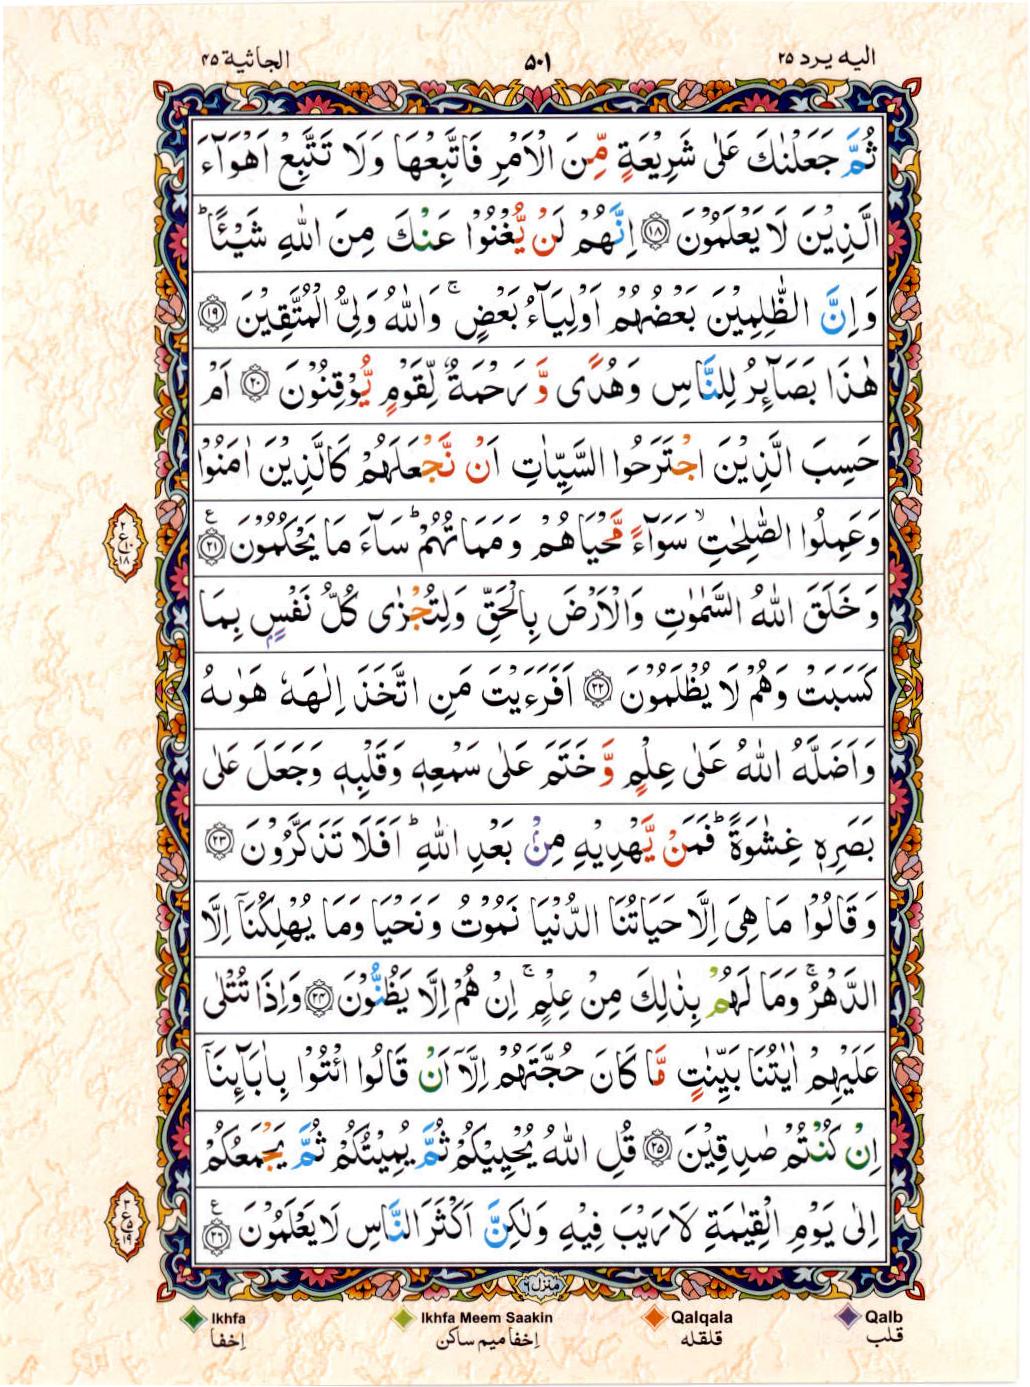 اليه يرد ۲۵
۵۰۱
الجاثية ۴۵
ثُمَّ جَعَلْنٰكَ عَلٰى شَرِيْعَةٍ مِّنَ الْاَمْرِ فَاتَّبِعْهَا وَلَا تَتَّبِعْ اَهْوَآءَ
الَّذِيْنَ لَا يَعْلَمُوْنَ ﴿۱۸﴾ اِنَّهُمْ لَنْ يُّغْنُوْا عَنْكَ مِنَ اللّٰهِ شَيْـًٔا ؕ
وَاِنَّ الظّٰلِمِيْنَ بَعْضُهُمْ اَوْلِيَآءُ بَعْضٍ ۚ وَاللّٰهُ وَلِىُّ الْمُتَّقِيْنَ ﴿۱۹﴾
هٰذَا بَصَآئِرُ لِلنَّاسِ وَهُدًى وَّ رَحْمَةٌ لِّقَوْمٍ يُّوْقِنُوْنَ ﴿۲۰﴾ اَمْ
حَسِبَ الَّذِيْنَ اجْتَرَحُوا السَّيِّاٰتِ اَنْ نَّجْعَلَهُمْ كَالَّذِيْنَ اٰمَنُوْا
وَعَمِلُوا الصّٰلِحٰتِ ۙ سَوَآءً مَّحْيَاهُمْ وَمَمَاتُهُمْ ؕ سَآءَ مَا يَحْكُمُوْنَ ﴿۲۱﴾ ع
وَخَلَقَ اللّٰهُ السَّمٰوٰتِ وَالْاَرْضَ بِالْحَقِّ وَلِتُجْزٰى كُلُّ نَفْسٍۭ بِمَا
كَسَبَتْ وَهُمْ لَا يُظْلَمُوْنَ ﴿۲۲﴾ اَفَرَءَيْتَ مَنِ اتَّخَذَ اِلٰهَهٗ هَوٰٮهُ
وَاَضَلَّهُ اللّٰهُ عَلٰى عِلْمٍ وَّخَتَمَ عَلٰى سَمْعِهٖ وَقَلْبِهٖ وَجَعَلَ عَلٰى
بَصَرِهٖ غِشٰوَةً ؕ فَمَنْ يَّهْدِيْهِ مِنْۢ بَعْدِ اللّٰهِ ؕ اَفَلَا تَذَكَّرُوْنَ ﴿۲۳﴾
وَقَالُوْا مَا هِىَ اِلَّا حَيَاتُنَا الدُّنْيَا نَمُوْتُ وَنَحْيَا وَمَا يُهْلِكُنَاۤ اِلَّا
الدَّهْرُ ۚ وَمَا لَهُمْ بِذٰلِكَ مِنْ عِلْمٍ ۚ اِنْ هُمْ اِلَّا يَظُنُّوْنَ ﴿۲۴﴾ وَاِذَا تُتْلٰى
عَلَيْهِمْ اٰيٰتُنَا بَيِّنٰتٍ مَّا كَانَ حُجَّتَهُمْ اِلَّاۤ اَنْ قَالُوا ائْتُوْا بِاٰبَآئِنَاۤ
اِنْ كُنْتُمْ صٰدِقِيْنَ ﴿۲۵﴾ قُلِ اللّٰهُ يُحْيِيْكُمْ ثُمَّ يُمِيْتُكُمْ ثُمَّ يَجْمَعُكُمْ
اِلٰى يَوْمِ الْقِيٰمَةِ لَا رَيْبَ فِيْهِ وَلٰكِنَّ اَكْثَرَ النَّاسِ لَا يَعْلَمُوْنَ ﴿۲۶﴾ ع
منزل ۶
Ikhfa Ikhfa Meem Saakin Qalqala Qalb
اِخفا اِخفا میم ساکن قلقله قلب